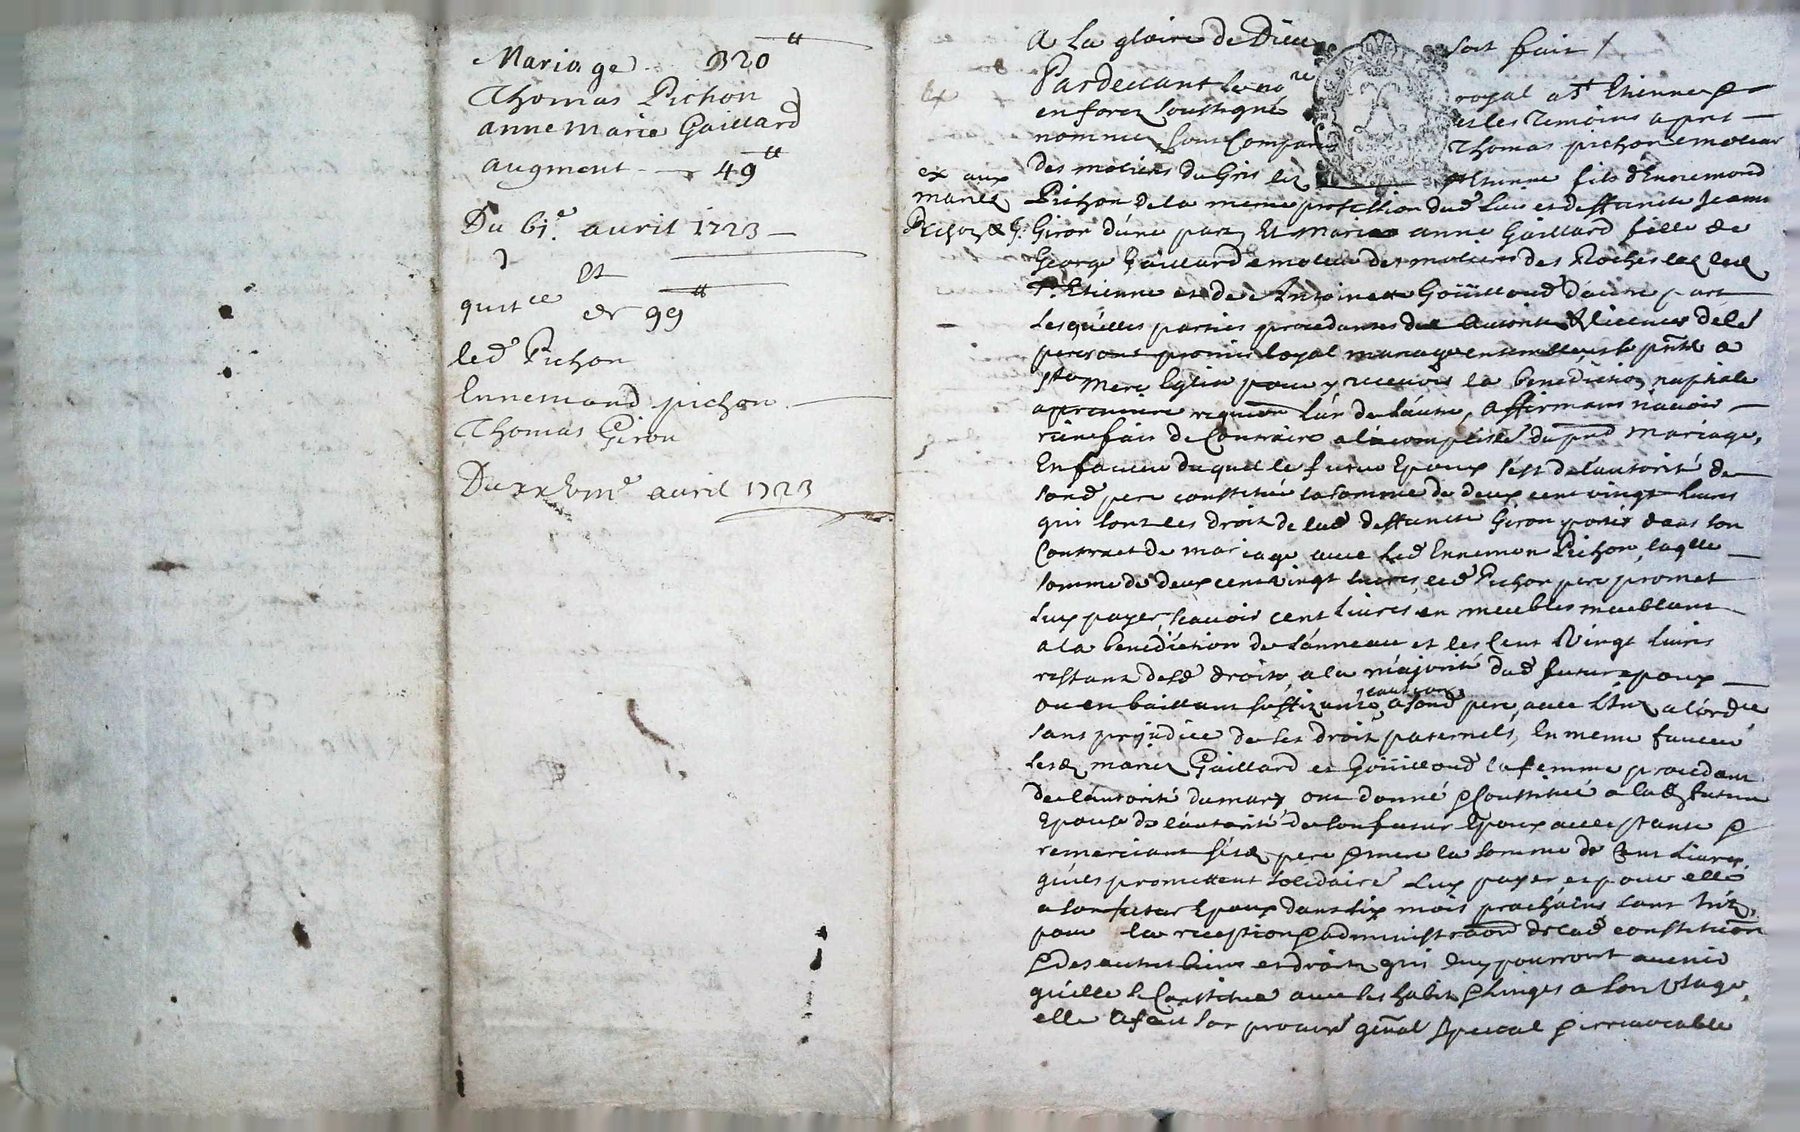 Mariage .. 320ᵗᵗ
Thomas Pichon
anne marie Gaillard
augment - 49ᵗᵗ
Du 6j.ᵉ avril 1723 -
Et
quitᶜᵉ de 99ᵗᵗ
led Pichon
Ennemond pichon
Thomas Giron
Du avril 1723
ex
ex aux
mariez
Pichon & G.
A la gloire de Dieu soit fait /
Pardevant le noʳᵉ royal a Sᵗ Etienne &
en forez soussigné et les temoins apres
nommez sont comparus Thomas pichon emoleur
des molieres du Gris lez Sᵗ Etienne fils d'Ennemond
Pichon de la meme profession dud lieu et deffuncte Jeanne
Giron d'une part Et Marie anne Gaillard fille de
George Gaillard emoleur des molieres des Roches lez led
Sᵗ Etienne et de Antoinette Goüilloud d'autre part
Lesquelles parties procedantes de l'autorité & licence de le
peres ont promis loyal mariage ensemble et se pnter a
Sᵗᵉ mere Eglise pour y recevoir la benediction nuptiale
a premiere requion l'un de l'autre, affirmans n'avoir
rien fait de contraire a la complitte du pnd mariage,
En faveur duquel le futur Epoux s'est de l'autorité de
sond pere constitué la somme de deux cent vingt livres
qui sont les droits de lad deffuncte Giron portés dans son
Contract de mariage avec led Ennemon Pichon, laqlle
somme de deux cent vingt livres led Pichon pere promet
luy payer, scavoir cent livres en meubles meublant
a la benediction de l'anneau et les cent vingt livres
restant desd droits, a la majorité dud futur epoux
ou en baillant suffizante caution a sond pere, avec
sans prejudice de ses droits paternels, En meme faveur
lesd mariez Gaillard et Goüilloud la femme procedant
de l'autorité du mary ont donné & constitué a lad future
Epouse de l'autorité de son futur Epoux acceptante &
remerciant sesd pere & mere la somme de cent livres
qu'ils promettent solidairᵗ luy payer et pour elle
a son futur Epoux dans six mois prochains sans
pour la reception & administraon de lad constitution
& des autres biens et droits qui luy pourront avenir
qu'elle se constitue avec ses habits & linges a son usage,
elle a fait son procurʳ gñal special & irrevocable